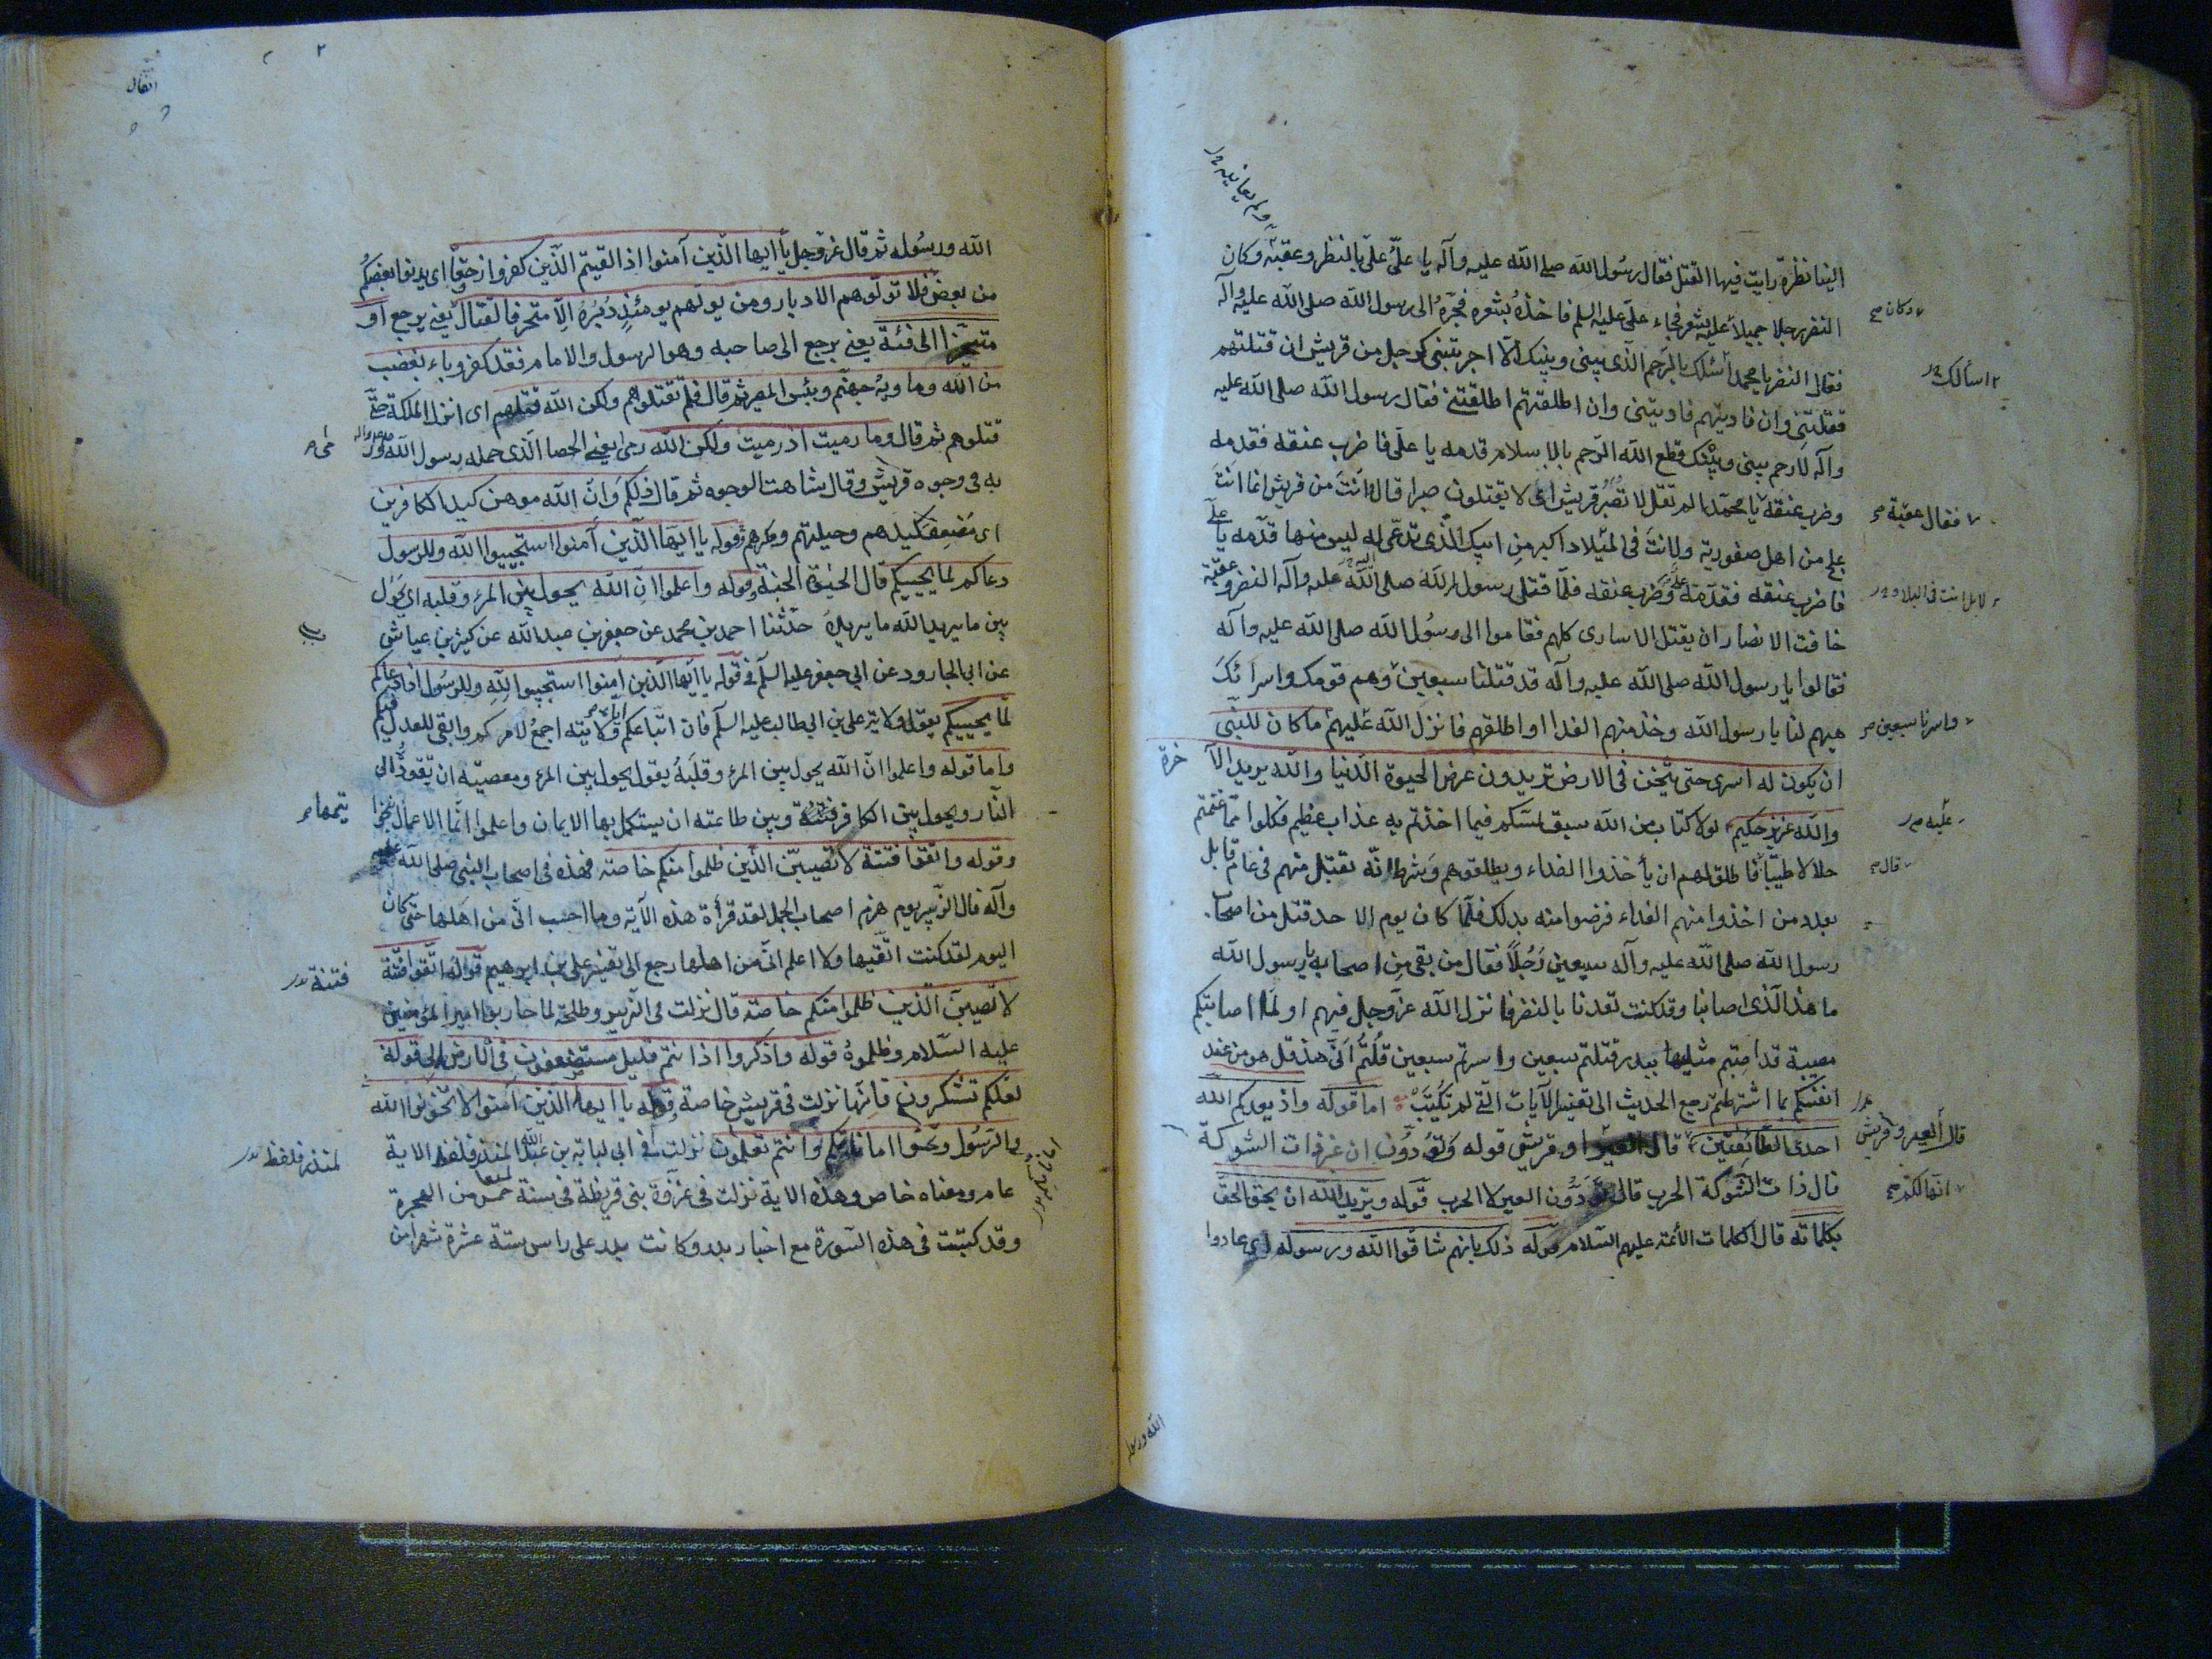 الينا نظرة رايت فيها القتل فقال رسول الله صلى الله عليه وآله يا علىّ علىّ بالنظر وعقبة وكان
النضر رجلا جميلا عليه شعر فجاء على عليه السلم فاخذه بشعره فجرّه الى رسول الله صلى الله عليه وآله
فقال النضر يا محمد أسئلك بالرحم الذى بينى وبينك الّا اجريتنى كرجل من قريش ان قتلتهم
قتلتنى وان فاديتهم فاديتنى وان اطلقتهم اطلقتنى فقال رسول الله صلى الله عليه
وآله لا رحم بينى وبينك قطع الله الرحم بالاسلام قدمه يا على فاضرب عنقه فقدمه
وضرب عنقه يا محمد الم تقل لا تصبر قريش اى لا يقتلون صبرا قال وانت من قريش انما انت
علج من اهل صفورية ولانت فى الميلاد اكبر من ابيك الذى تدعى له ليس منها قدمه يا على
فاضرب عنقه فقدمه وضرب عنقه فلما قتل رسول الله صلى الله عليه وآله النضر وعقبة
خافت الانصار ان يقتل الاسارى كلهم فقاموا الى رسول الله صلى الله عليه وآله
فقالوا يا رسول الله صلى الله عليه وآله قد قتلنا سبعين وهم قومك واسرائك
هبهم لنا يا رسول الله وخذ منهم الفدا او اطلقهم فانزل الله عليهم ما كان للنبى
ان يكون له اسرى حتى يثخن فى الارض تريدون عرض الحيوة الدنيا والله يريد الآخرة
والله عزيز حكيم لولا كتاب من الله سبق لمسكم فيما اخذتم به عذاب عظيم فكلوا مما غنمتم
حلالا طيبا فاطلق لهم ان يأخذوا الفداء ويطلقوهم وشرط انه يقتل منهم فى عام قابل
بعدد من اخذوا منهم الفداء فرضوا منه بذلك فلما كان يوم الاحد قتل من اصحاب
رسول الله صلى الله عليه وآله سبعين رجلا فقال من بقى من اصحابه يا رسول الله
ما هذا الذى اصابنا وقد كنت تعدنا بالنصر فانزل الله عزوجل فيهم اولما اصابتكم
مصيبة قد اصبتم مثليها ببدر قتلتم سبعين واسرتم سبعين قلتم انى هذ قل هو من عند
انفسكم بما اشترطتم رجع الحديث الى تفسير الآيات التى لم تكتب اما قوله واذ يعدكم الله
احدى الطائفتين قال العير او قريش قوله وتودون ان غير ذات الشوكة
قال ذات الشوكة الحرب قال تودون العير لا الحرب قوله ويريد الله ان يحق الحق
بكلماته قال الكلمات الأئمة عليهم السلام قوله ذلك بانهم شاقوا الله ورسوله اى عادوا
وكان
اسألك
فقال عقبة
واسرنا سبعين
عليه
قال
قال العير وقريش
الله ورسوله
انفال
٢
الله ورسوله ثم قال عزوجل يا ايها الذين آمنوا اذا لقيتم الذين كفروا زحفا اى يدنوا بعضكم
من بعض فلا تولوهم الادبار ومن يولهم يومئذ دبره الا متحرفا لقتال يعنى يرجع او
متحيزا الى فئة يعنى يرجع الى صاحبه وهو الرسول والامام فقد كفر وباء بغضب
من الله وماويه جهنم وبئس المصير ثم قال فلم تقتلوهم ولكن الله قتلهم اى انزل الملئكة حتى
قتلوهم ثم قال وما رميت اذ رميت ولكن الله رمى يعنى الحصا الذى حمله رسول الله
به فى وجوه قريش وقال شاهت الوجوه ثم قال ذلكم وانّ الله موهن كيد الكافرين
اى مضعف كيدهم وحيلتهم ومكرهم وقوله يا ايها الذين آمنوا استجيبوا لله وللرسول
دعاكم لما يحييكم قال الحيوة الجنة وقوله واعلموا ان الله يحول بين المرء وقلبه اى يحول
بين ما يريد الله ما يريده حدثنا احمد بن محمد عن جعفر بن عبد الله عن كثير بن عياش
عن ابى الجارود عن ابى جعفر عليه السلم فى قوله يا ايها الذين آمنوا استجيبوا لله وللرسول اذا دعاكم
لما يحييكم يقول ولاية على بن ابى طالب عليه السلم فان اتباعكم ولايته اجمع لامركم وابقى للعدل فيكم
واما قوله واعلموا ان الله يحول بين المرء وقلبه يقول يحول بين المرء ومعصيته ان تقوده الى
النار ويحول بين الكافر وبين طاعته ان يستكمل بها الايمان واعلموا انما الاعمال
وقوله واتقوا فتنة لا تصيبن الذين ظلموا منكم خاصة فهذه فى اصحاب النبى صلى الله عليه
وآله قال الزبير يوم هزم اصحاب الجمل لقد قرأة هذه الآية وما احسب انى من اهلها حتى كان
اليوم لقد كنت اتقيها ولا اعلم انى من اهلها رجع الى تفسير على بن ابرهيم قوله اتقوا فتنة
لا تصيبن الذين ظلموا منكم خاصة قال نزلت فى الزبير وطلحة لما حاربوا امير المؤمنين
عليه السلام وظلموه قوله واذكروا اذ انتم قليل مستضعفون فى الارض الى قوله
لعلكم تشكرون فانها نزلت فى قريش خاصة قوله يا ايها الذين آمنوا لا تخونوا الله
والرسول وتخونوا اماناتكم وانتم تعلمون نزلت فى ابى لبابة بن عبد المنذر فلفظ الاية
عام ومعناه خاص وهذه الاية نزلت فى غزوة بنى قريظة فى سنة خمس من الهجرة
وقد كتبت فى هذه السورة مع اخبار بدر وكانت بدر على راس ستة عشرة شهرا من
فتنة
لمنذر فلفظ